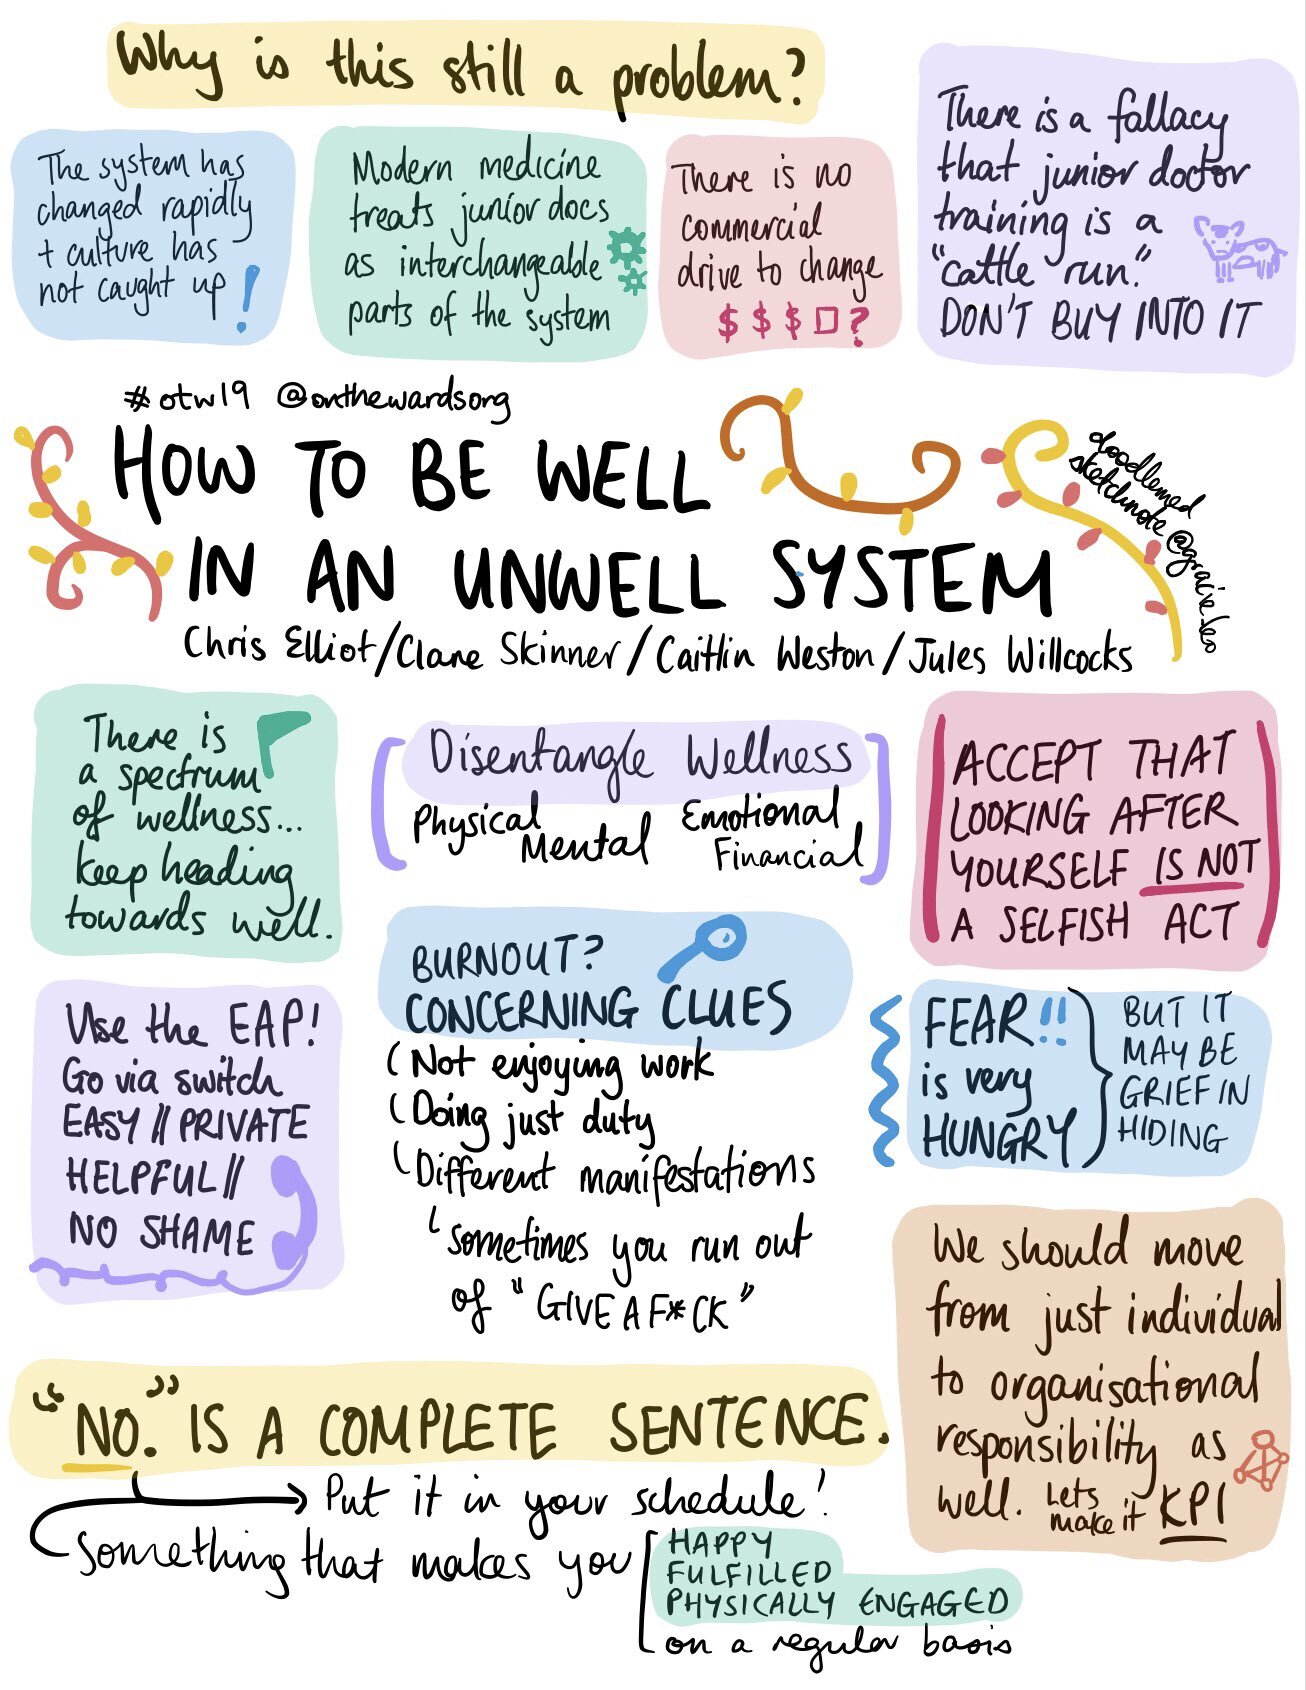 Why is this still a problem?
The system has
changed rapidly
+ culture has
not caught up!
Modern medicine
treats junior docs
as interchangeable
parts of the system
There is no
commercial
drive to change
$ $ $ □ ?
There is a fallacy
that junior doctor
training is a
"cattle run."
DON'T BUY INTO IT
#otw19 @onthewardsorg
HOW TO BE WELL
IN AN UNWELL SYSTEM
Chris Elliot/Clare Skinner/Caitlin Weston/Jules Willcocks
doodlemed
sketchnote @gracieleo
There is
a spectrum
of wellness...
keep heading
towards well.
Disentangle Wellness
Physical Emotional
Mental Financial
ACCEPT THAT
LOOKING AFTER
YOURSELF IS NOT
A SELFISH ACT
Use the EAP!
Go via switch
EASY // PRIVATE
HELPFUL //
NO SHAME
BURNOUT?
CONCERNING CLUES
Not enjoying work
Doing just duty
Different manifestations
sometimes you run out
of "GIVE A F*CK"
FEAR!!
is very
HUNGRY
BUT IT
MAY BE
GRIEF IN
HIDING
We should move
from just individual
to organisational
responsibility as
well. Lets
make it KPI
"NO." IS A COMPLETE SENTENCE.
Put it in your schedule!
Something that makes you
HAPPY
FULFILLED
PHYSICALLY ENGAGED
on a regular basis